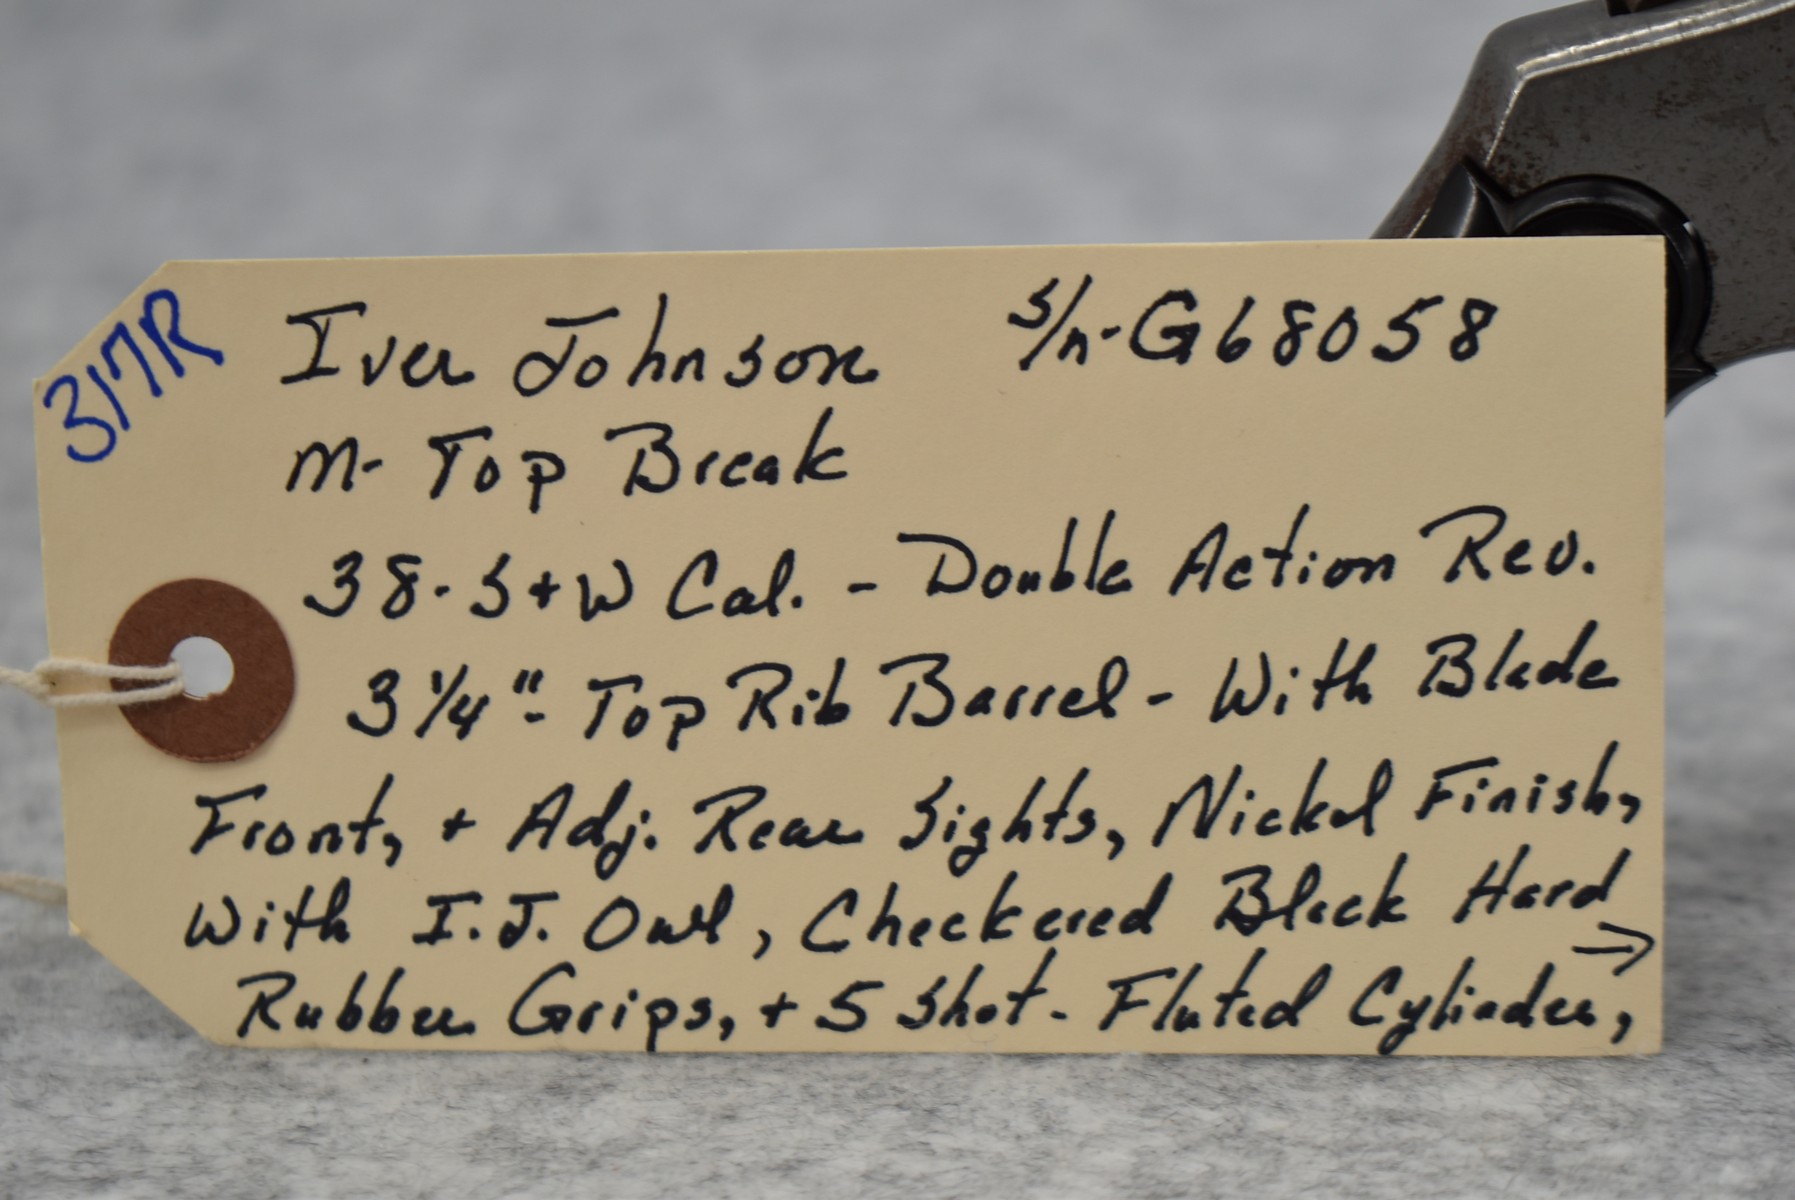 317R
Iver Johnson s/n-G68058
M- Top Break
38-S+W Cal. - Double Action Rev.
3 1/4"- Top Rib Barrel - With Blade
Front, + Adj. Rear Sights, Nickel Finish,
With I.J. Owl, Checkered Black Hard
→
Rubber Grips, + 5 Shot - Fluted Cylinder,